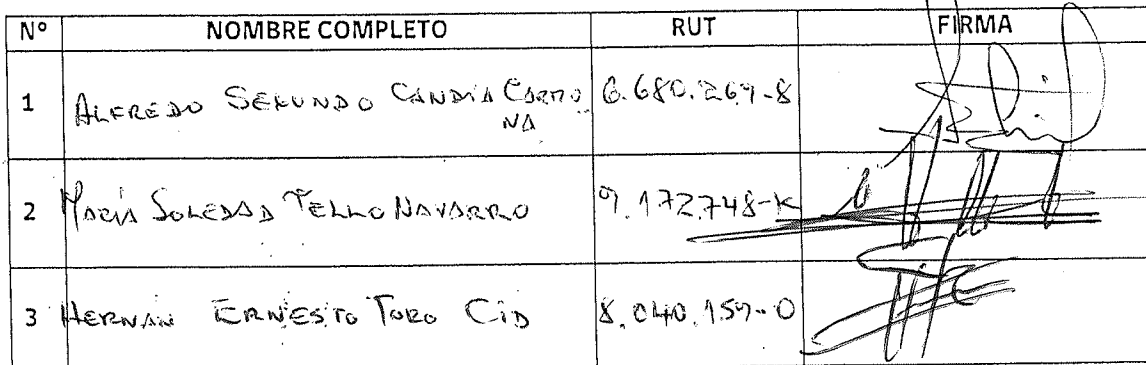 Nº NOMBRE COMPLETO RUT FIRMA
1 ALFREDO SEGUNDO CANDIA CARMO 6.680.269-8
NA
2 MARÍA SOLEDAD TELLO NAVARRO 9.172.748-K
3 HERNÁN ERNESTO TORO CID 8.040.159-0